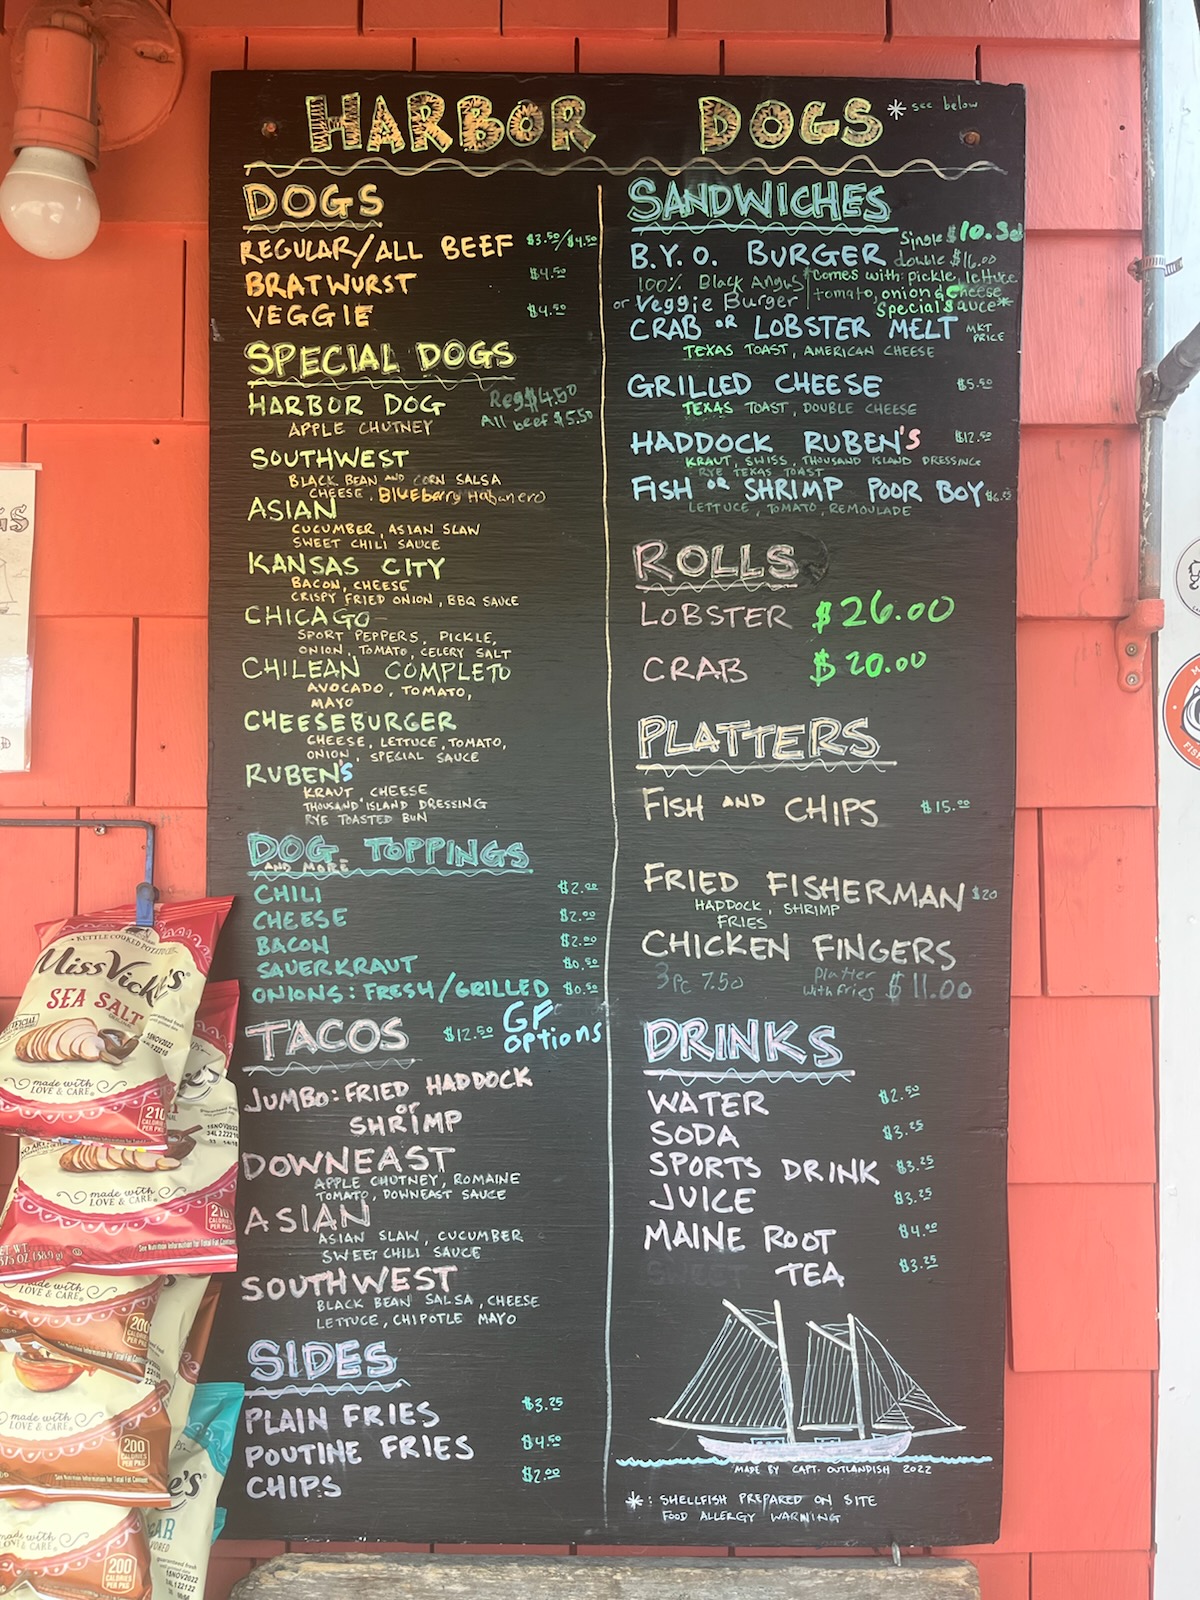 HARBOR DOGS * see below
DOGS
REGULAR/ALL BEEF $3.50/$4.50
BRATWURST $4.50
VEGGIE $4.50
SPECIAL DOGS
HARBOR DOG Reg $4.50
APPLE CHUTNEY All beef $5.50
SOUTHWEST
BLACK BEAN AND CORN SALSA
CHEESE, Blueberry Habanero
ASIAN
CUCUMBER, ASIAN SLAW
SWEET CHILI SAUCE
KANSAS CITY
BACON, CHEESE
CRISPY FRIED ONION, BBQ SAUCE
CHICAGO
SPORT PEPPERS, PICKLE,
ONION, TOMATO, CELERY SALT
CHILEAN COMPLETO
AVOCADO, TOMATO,
MAYO
CHEESEBURGER
CHEESE, LETTUCE, TOMATO,
ONION, SPECIAL SAUCE
RUBEN'S
KRAUT, CHEESE
THOUSAND ISLAND DRESSING
RYE TOASTED BUN
DOG TOPPINGS
AND MORE
CHILI $2.00
CHEESE $2.00
BACON $2.00
SAUERKRAUT $0.50
ONIONS: FRESH/GRILLED $0.50
TACOS $12.50 GF
options
JUMBO: FRIED HADDOCK
or
SHRIMP
DOWNEAST
APPLE CHUTNEY, ROMAINE
TOMATO, DOWNEAST SAUCE
ASIAN
ASIAN SLAW, CUCUMBER
SWEET CHILI SAUCE
SOUTHWEST
BLACK BEAN SALSA, CHEESE
LETTUCE, CHIPOTLE MAYO
SIDES
PLAIN FRIES $3.25
POUTINE FRIES $4.50
CHIPS $2.00
SANDWICHES
Single $10.50
B.Y.O. BURGER double $16.00
100% Black Angus Comes with: pickle, lettuce
or Veggie Burger tomato, onion & Cheese
Special Sauce*
CRAB OR LOBSTER MELT MKT
PRICE
TEXAS TOAST, AMERICAN CHEESE
GRILLED CHEESE $5.50
TEXAS TOAST, DOUBLE CHEESE
HADDOCK RUBEN'S $12.50
KRAUT, SWISS, THOUSAND ISLAND DRESSING
RYE TEXAS TOAST
FISH OR SHRIMP POOR BOY
LETTUCE, TOMATO, REMOULADE
ROLLS
LOBSTER $26.00
CRAB $20.00
PLATTERS
FISH AND CHIPS $15.00
FRIED FISHERMAN $20
HADDOCK, SHRIMP
FRIES
CHICKEN FINGERS
3pc 7.50 Platter
with fries $11.00
DRINKS
WATER $2.50
SODA $3.25
SPORTS DRINK $3.25
JUICE $3.25
MAINE ROOT $4.00
SWEET TEA $3.25
MADE BY CAPT. OUTLANDISH 2022
*: SHELLFISH PREPARED ON SITE
FOOD ALLERGY WARNING
KETTLE COOKED POTATO
Miss Vickie's
SEA SALT
made with
LOVE & CARE
210
CALORIES
PER PKG
15NOV2022
made with
LOVE & CARE
210
CALORIES
PER PKG
made with
LOVE & CARE
200
CALORIES
PER PKG
made with
LOVE & CARE
200
CALORIES
PER PKG
made with
LOVE & CARE
200
CALORIES
PER PKG
15NOV2022